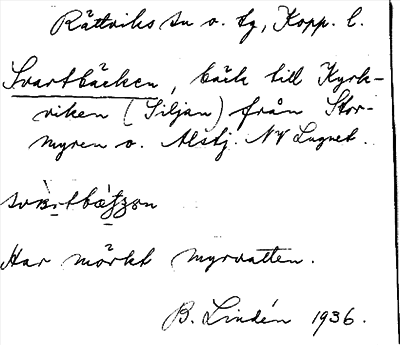 Rättviks sn o. tg, Kopp. l.
Svartbäcken, bäck till Kyrk-
viken (Siljan) från Stor-
myren o. Alstj. NV Lugnet.
Har mörkt myrvatten.
B. Lindén 1936.